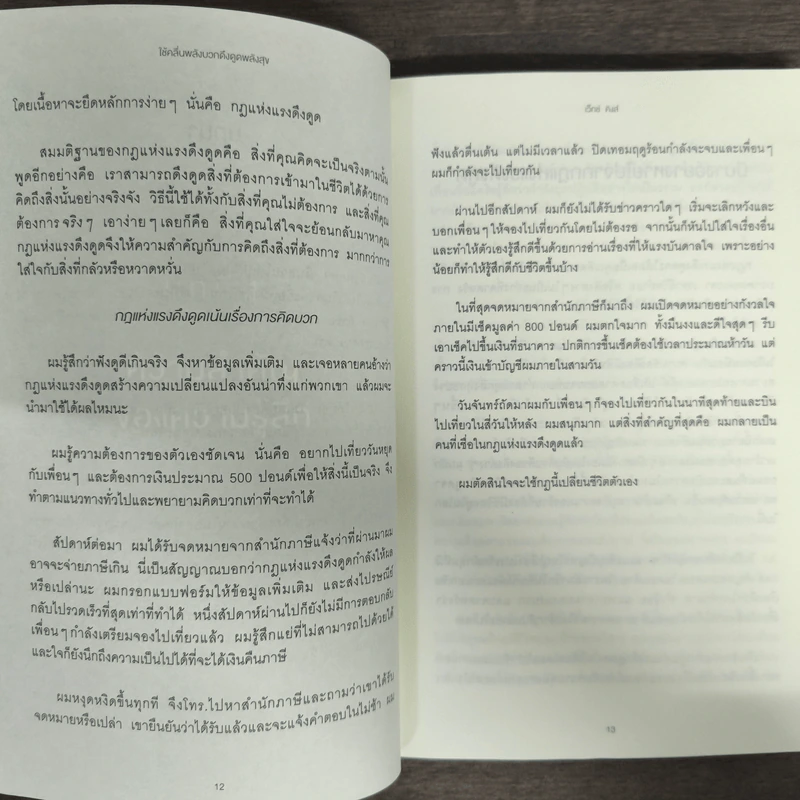 ใช้คลื่นพลังบวกดึงดูดพลังสุข
โดยเนื้อหาจะยึดหลักการง่ายๆ นั่นคือ กฎแห่งแรงดึงดูด
สมมติฐานของกฎแห่งแรงดึงดูดคือ สิ่งที่คุณคิดจะเป็นจริงตามนั้น
พูดอีกอย่างคือ เราสามารถดึงดูดสิ่งที่ต้องการเข้ามาในชีวิตได้ด้วยการ
คิดถึงสิ่งนั้นอย่างจริงจัง วิธีนี้ใช้ได้ทั้งกับสิ่งที่คุณไม่ต้องการ และสิ่งที่คุณ
ต้องการจริงๆ เอาง่ายๆ เลยก็คือ สิ่งที่คุณใส่ใจจะย้อนกลับมาหาคุณ
กฎแห่งแรงดึงดูดจึงให้ความสำคัญกับการคิดถึงสิ่งที่ต้องการ มากกว่าการ
ใส่ใจกับสิ่งที่กลัวหรือหวาดหวั่น
กฎแห่งแรงดึงดูดเน้นเรื่องการคิดบวก
ผมรู้สึกว่าฟังดูดีเกินจริง จึงหาข้อมูลเพิ่มเติม และเจอหลายคนอ้างว่า
กฎแห่งแรงดึงดูดสร้างความเปลี่ยนแปลงอันน่าทึ่งแก่พวกเขา แล้วผมจะ
นำมาใช้ได้ผลไหมนะ
ผมรู้ความต้องการของตัวเองชัดเจน นั่นคือ อยากไปเที่ยววันหยุด
กับเพื่อนๆ และต้องการเงินประมาณ 500 ปอนด์เพื่อให้สิ่งนี้เป็นจริง จึง
ทำตามแนวทางทั่วไปและพยายามคิดบวกเท่าที่จะทำได้
สัปดาห์ต่อมา ผมได้รับจดหมายจากสำนักภาษีแจ้งว่าที่ผ่านมาผม
อาจจะจ่ายภาษีเกิน นี่เป็นสัญญาณบอกว่ากฎแห่งแรงดึงดูดกำลังให้ผล
หรือเปล่านะ ผมกรอกแบบฟอร์มให้ข้อมูลเพิ่มเติม และส่งไปรษณีย์
กลับไปรวดเร็วที่สุดเท่าที่ทำได้ หนึ่งสัปดาห์ผ่านไปก็ยังไม่มีการตอบกลับ
เพื่อนๆ กำลังเตรียมจองไปเที่ยวแล้ว ผมรู้สึกแย่ที่ไม่สามารถไปด้วยได้
และใจก็ยังนึกถึงความเป็นไปได้ที่จะได้เงินคืนภาษี
ผมหงุดหงิดขึ้นทุกที จึงโทร.ไปหาสำนักภาษีและถามว่าเขาได้รับ
จดหมายหรือเปล่า เขายืนยันว่าได้รับแล้วและจะแจ้งคำตอบในไม่ช้า ผม
12
เว็กซ์ คิงส์
ฟังแล้วตื่นเต้น แต่ไม่มีเวลาแล้ว ปิดเทอมฤดูร้อนกำลังจะจบและเพื่อนๆ
ผมก็กำลังจะไปเที่ยวกัน
ผ่านไปอีกสัปดาห์ ผมก็ยังไม่ได้รับข่าวคราวใดๆ เริ่มจะเลิกหวังและ
บอกเพื่อนๆ ให้จองไปเที่ยวกันโดยไม่ต้องรอ จากนั้นก็หันไปใส่ใจเรื่องอื่น
และทำให้ตัวเองรู้สึกดีขึ้นด้วยการอ่านเรื่องที่ให้แรงบันดาลใจ เพราะอย่าง
น้อยก็ทำให้รู้สึกดีกับชีวิตขึ้นบ้าง
ในที่สุดจดหมายจากสำนักภาษีก็มาถึง ผมเปิดจดหมายอย่างกังวลใจ
ภายในมีเช็คมูลค่า 800 ปอนด์ ผมตกใจมาก ทั้งมึนงงและดีใจสุดๆ รีบ
เอาเช็คไปขึ้นเงินที่ธนาคาร ปกติการขึ้นเช็คต้องใช้เวลาประมาณห้าวัน แต่
คราวนี้เงินเข้าบัญชีผมภายในสามวัน
วันจันทร์ถัดมาผมกับเพื่อนๆ ก็จองไปเที่ยวกันในนาทีสุดท้ายและบิน
ไปเที่ยวในสี่วันให้หลัง ผมสนุกมาก แต่สิ่งที่สำคัญที่สุดคือ ผมกลายเป็น
คนที่เชื่อในกฎแห่งแรงดึงดูดแล้ว
ผมตัดสินใจจะใช้กฎนี้เปลี่ยนชีวิตตัวเอง
13